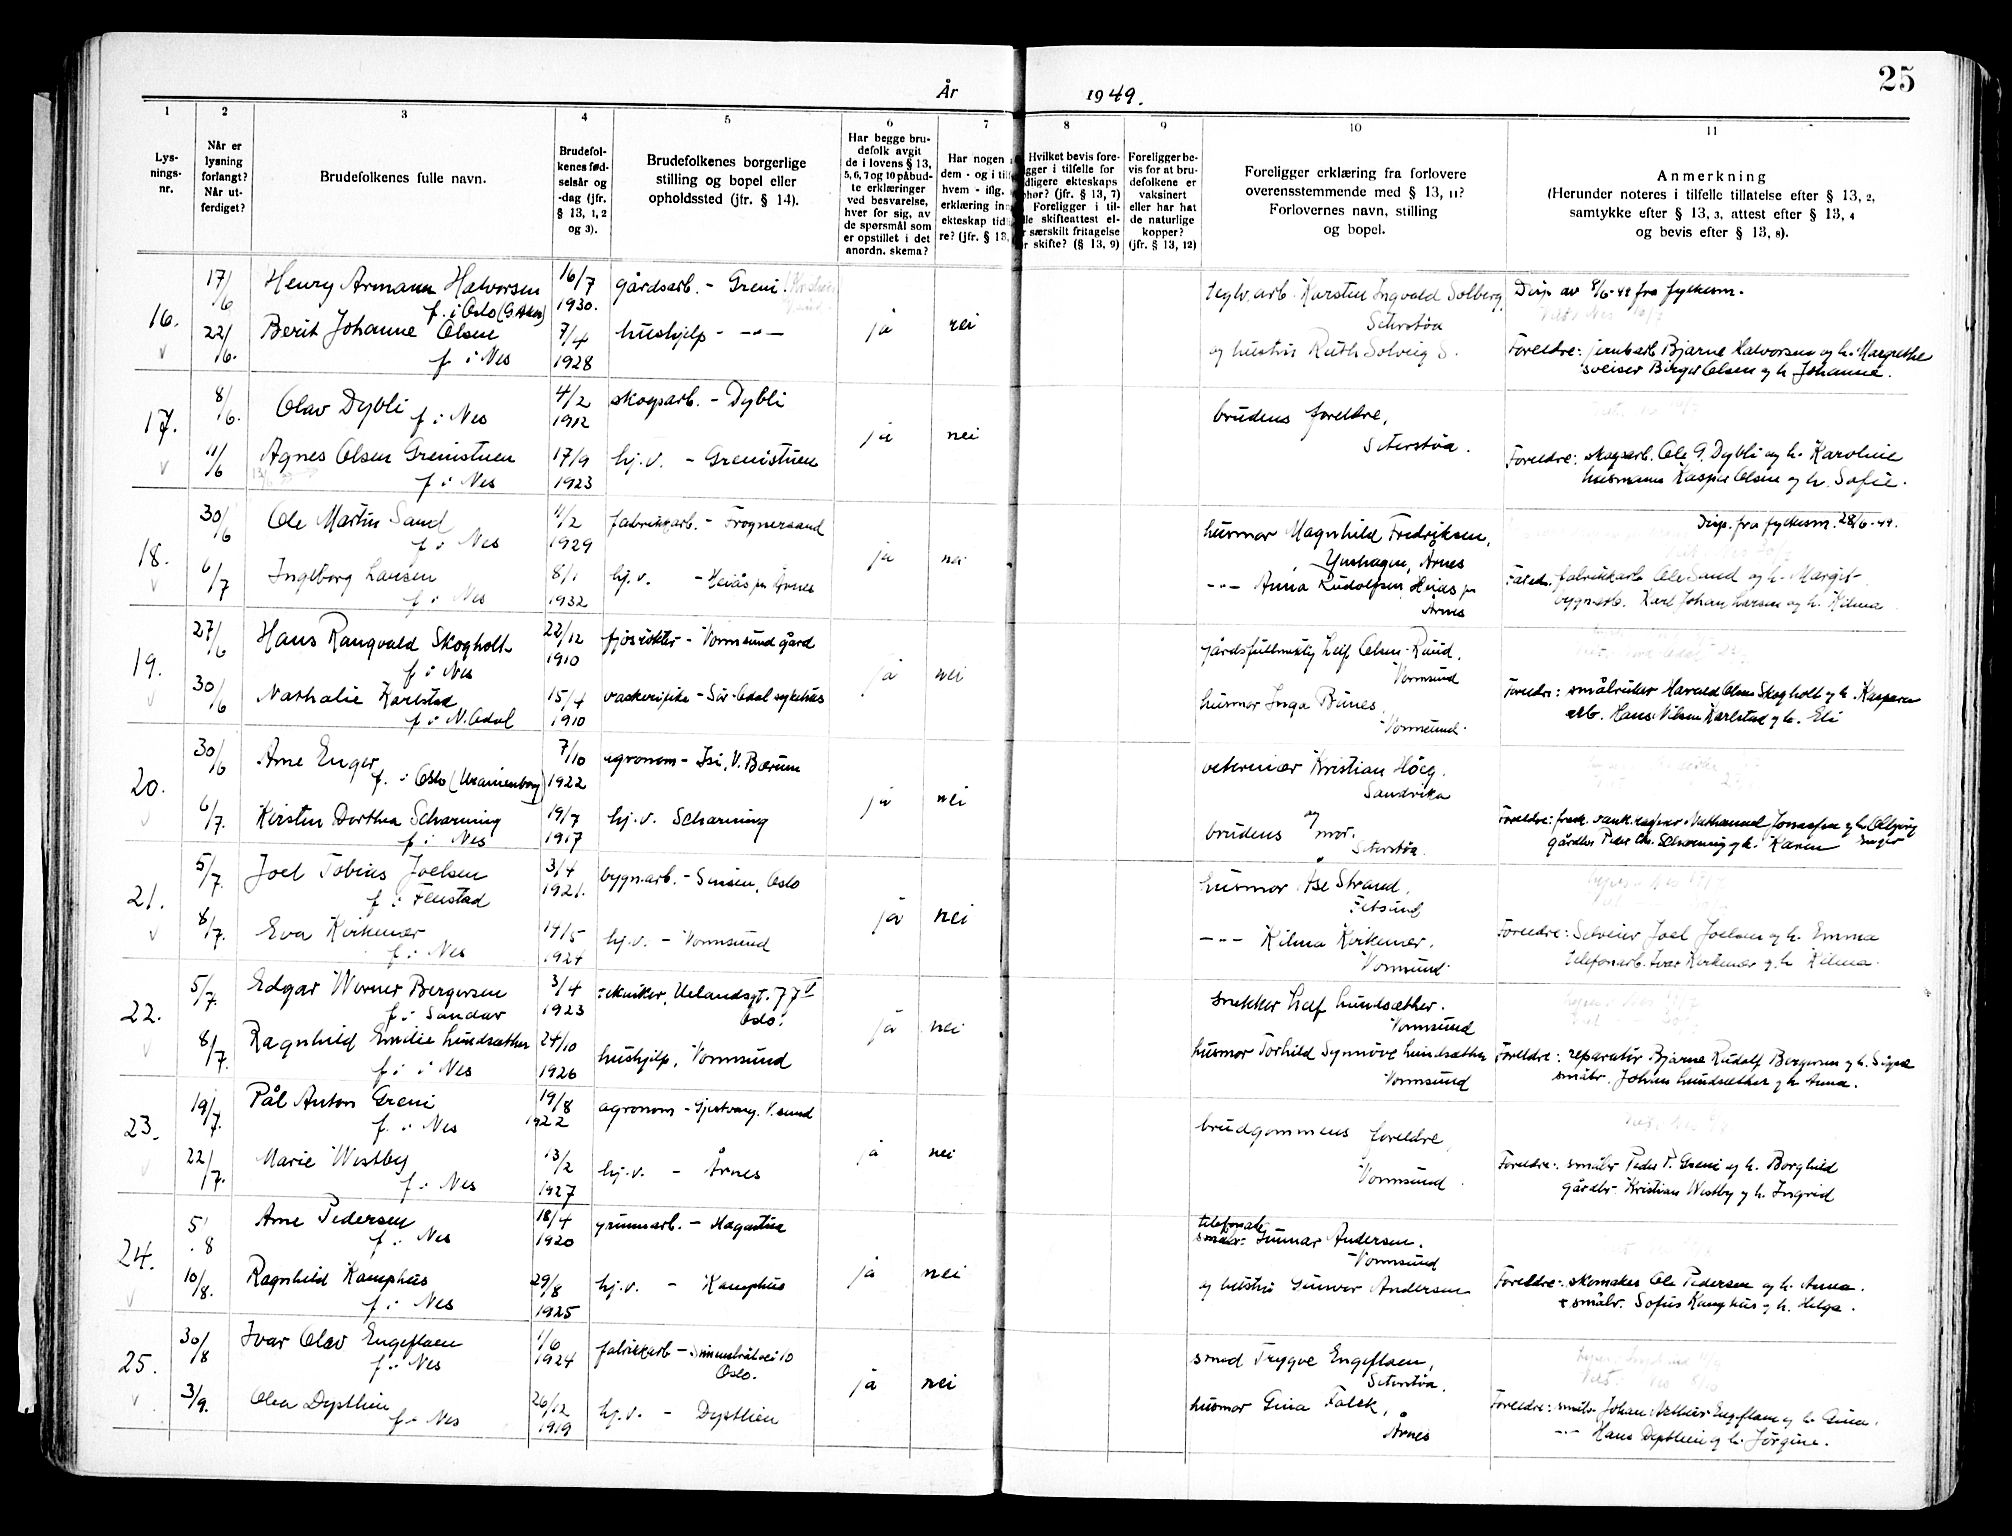 25
År 1949.
1 2 3 4 5 6 7 8 9 10 11
Lys-
nings-
nr.
Når er
lysning
forlangt?
Når ut-
ferdiget?
Brudefolkenes fulle navn.
Brudefol-
kenes fød-
selsår og
-dag (jfr.
§ 13, 1, 2
og 3).
Brudefolkenes borgerlige
stilling og bopel eller
opholdssted (jfr. § 14).
Har begge bru-
defolk avgit
de i lovens § 13,
5, 6, 7 og 10 påbud-
te erklæringer
ved besvarelse,
hver for sig, av
de spørsmål som
er opstillet i det
anordn. skema?
Har nogen
dem - og i
hvem - iflg.
erklæring
ekteskap
re? (jfr. § 13,
Hvilket bevis fore-
i tilfelle for
ekteskaps
(jfr. § 13, 7)
Foreligger i til-
skifteattest el-
særskilt fritagelse
skifte? (§ 13, 9)
Foreligger be-
vis for at bru-
defolkene er
vaksinert
eller har hat
de naturlige
kopper?
(jfr. § 13, 12)
Foreligger erklæring fra forlovere
overensstemmende med § 13, 11?
Forlovernes navn, stilling
og bopel.
Anmerkning
(Herunder noteres i tilfelle tillatelse efter § 13, 2,
samtykke efter § 13, 3, attest efter § 13, 4
og bevis efter § 13, 8).
16. 17/6 Henry Armann Halvorsen 16/7 gårdsarb. - Greni ja nei Karsten Ingvald Solberg, Disp av 8/6-49 fra fylkesm.
f. i Oslo 1930. Seterstøa
22/6. Berit Johanne Olsen 7/4 hushjelp - -"- og hustru Ruth Solveig S. Foreldre: jernbarb Bjarne Halvorsen og h. Margrethe
f i Nes 1928 sveiser Birger Olsen og h. Johanne.
17. 8/6. Olav Dybli 4/2 skogsarb. - Dybli ja nei brudens foreldre,
f i Nes 1912 Seterstøa.
11/6 Agnes Olsen Grenistuen 17/9 hj.v. - Grenistuen Foreldre: skogsarb. Ole G. Dybli og h. Karoline
f i Nes 1923 husmann Kasper Olsen og h. Sofie.
18. 30/6 Ole Martin Sand 11/2 fabrikkarb. - Frognersand ja nei husmor Magnhild Fredriksen, Disp. fra fylkesm. 28/6-49.
f i Nes 1929 Årnes
6/7 Ingeborg Larsen 8/1 hj.v. - Årnes -"- Anna Rudolfsen, fabrikkarb Ole Sand og h. Margit
f i Nes 1932 Årnes Karl Johan Larsen og h. Hilma
19. 27/6 Hans Rangvald Skogholt 22/12 fjøsrøkter - Vormsund gård ja nei gårdsfullmektig Leif Olsen Ruud,
f i Nes 1910 Vormsund
30/6 Nathalie Karlstad 15/4 vaskeripike - Sør-Odal sykehus husmor Inga Bunes, Foreldre: småbruker Harald Olsen Skogholt og h. Kaspara
f i N. Odal 1910 Vormsund. arb. Hans Nilsen Karlstad og h. Eli
20. 30/6 Arne Enger 7/10 agronom - Isi, V. Bærum ja nei veterinær Kristian Höeg.
f. i Oslo (Uranienborg) 1922 Sandvika
6/7. Kirsten Dorthea Scharning 19/7 hj.v. Scharning brudens mor. og h. Olbjørg
f i Nes 1917 Seterstøa. gårdbr Peder Chr. Scharning og h. Karen Enger
21. 5/7. Joel Tobias Joelsen 3/4 bygn.arb. - Sinsen, Oslo ja nei husmor Åse Strand,
f i Fenstad 1921. Fetsund
8/7. Eva Kirkemær 14/5 hj.v. - Vormsund -"- Hilma Kirkemær, Foreldre: Selveier Joel Joelsen og h. Emma
f i Nes 1924 Vormsund telefonarb. Ivar Kirkemær og h. Hilma.
22. 5/7. Edgar Werner Bergersen 3/4 tekniker, Uelandsgt. 77 V ja nei snekker Leif Lundsæther.
f i Sandar 1923 Oslo. Vormsund
8/7. Ragnhild Emilie Lundsæther 24/10 hushjelp, Vormsund husmor Torhild Synnøve Lundsæther Foreldre: reparatør Bjarne Rudolf Bergersen og h. Signe
f i Nes 1926 Vormsund småbr. Johan Lundsæther og h. Anna.
23. 19/7. Pål Anton Greni 19/8 agronom - V.sund ja nei brudgommens foreldre,
f. i Nes 1922 Vormsund.
22/7. Marie Westby 13/2 hj.v. - Årnes Foreldre: småbr Peder P. Greni og h. Borghild
f i Nes 1927 gårdbr Kristian Westby og h. Ingrid
24. 5/8 Arne Pedersen 18/4 - Hagastua ja nei Gunnar Andersen.
f i Nes 1920 Vormsund
10/8. Ragnhild Kamphus 29/8 hj.v. - Kamphus og hustru Gunvor Andersen Foreldre: skomaker Ole Pedersen og h. Anna.
f i Nes 1925 småbr. Sofus Kamphus og h. Helga.
25. 30/8 Ivar Olav Engeflaen 1/6 fabrikkarb - ja nei smed Trygve Engeflaen,
f i Nes 1924 Oslo. Seterstøa.
3/9. Olea Dystlien 26/12 hj.v. - Dystlien husmor Gina Falck, Foreldre: småbr Johan Engeflaen og h. Gina.
f i Nes 1919 Årnes -"- Hans Dystlien og h. Jørgine.